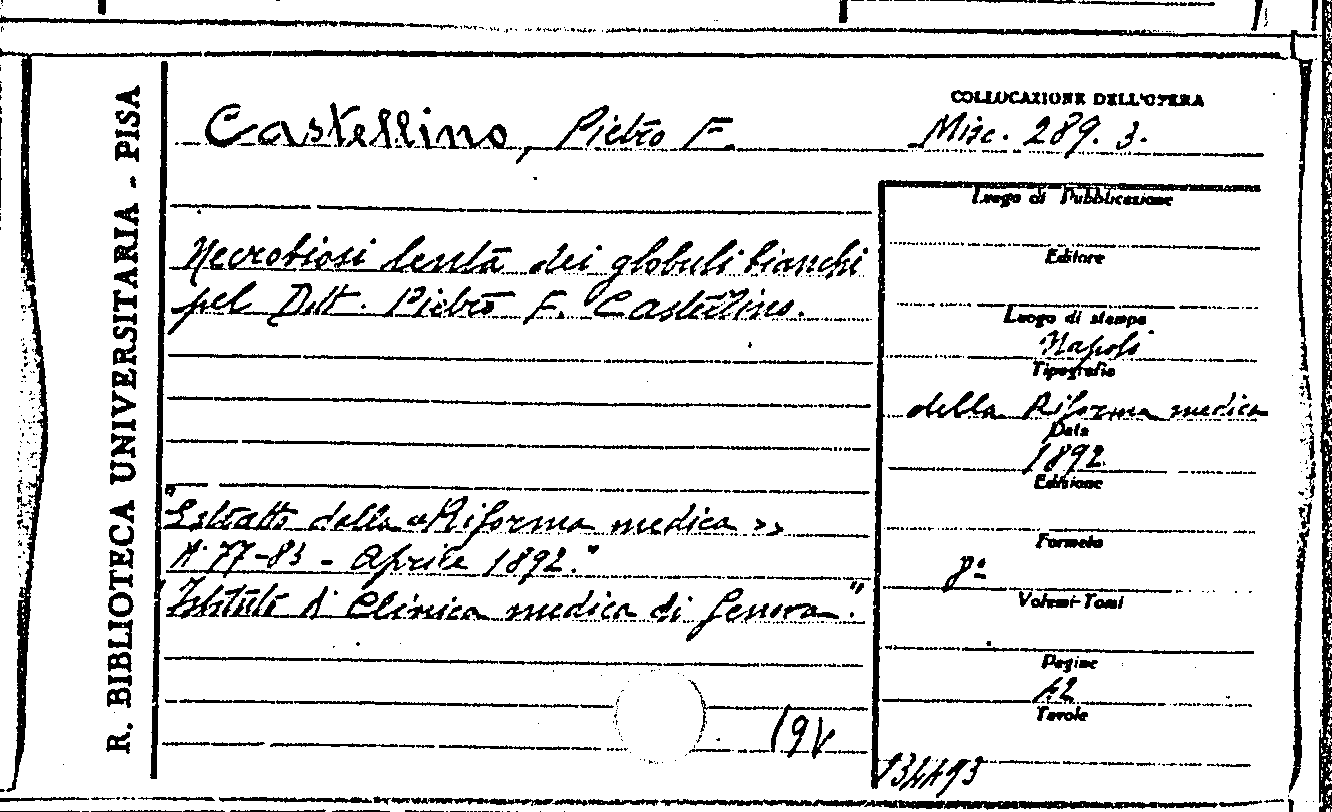 R. BIBLIOTECA UNIVERSITARIA - PISA
Castellino, Pietro F.
COLLOCAZIONE DELL'OPERA
Misc. 289. 3.
Necrobiosi lenta dei globuli bianchi
pel Dott. Pietro F. Castellino.
"Estratto dalla «Riforma medica»
N. 77-83 - Aprile 1892."
"Istituto di Clinica medica di Genova."
Luogo di Pubblicazione
Editore
Luogo di stampa
Napoli
Tipografia
della Riforma medica
Data
1892
Edizione
Formato
8º
Volumi-Tomi
Pagine
42
Tavole